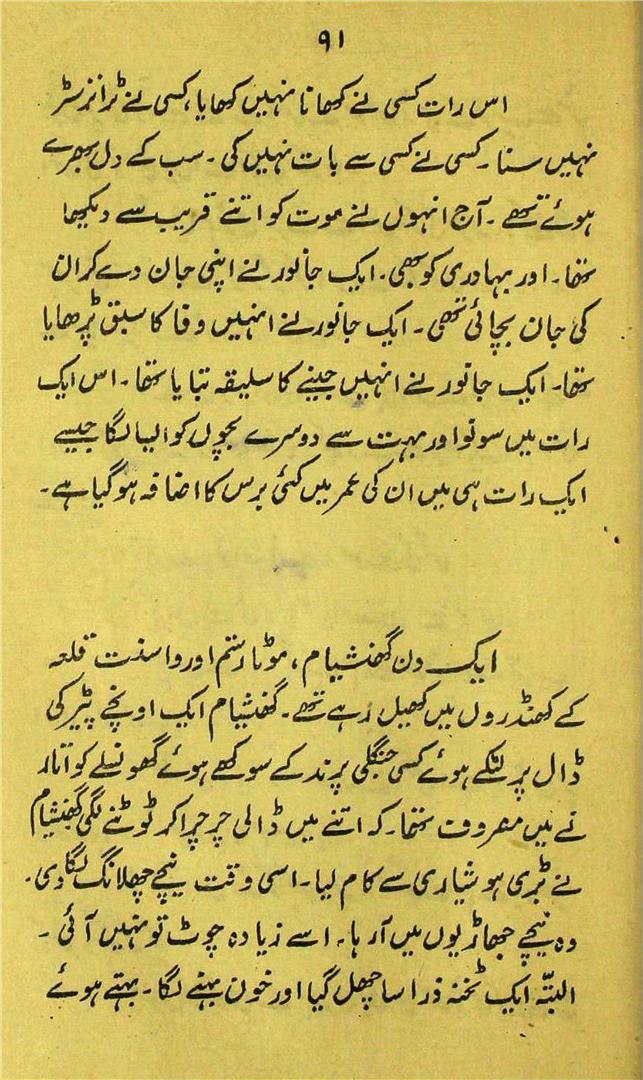 ۹۱
اس رات کسی نے کھانا نہیں کھایا، کسی نے ٹرانزسٹر
نہیں سنا۔ کسی نے کسی سے بات نہیں کی۔ سب کے دل بھرے
ہوئے تھے۔ آج انہوں نے موت کو اتنے قریب سے دیکھا
تھا۔ اور بہادری کو بھی۔ ایک جانور نے اپنی جان دے کر ان
کی جان بچائی تھی۔ ایک جانور نے انہیں وفا کا سبق پڑھایا
تھا۔ ایک جانور نے انہیں جینے کا سلیقہ بتایا تھا۔ اس ایک
رات میں سونو اور بہت سے دوسرے بچوں کو ایسا لگا جیسے
ایک رات ہی میں ان کی عمر میں کئی برس کا اضافہ ہو گیا ہے۔
ایک دن گھنشیام، موٹا رستم اور واسنت قلعہ
کے کھنڈروں میں کھیل رہے تھے۔ گھنشیام ایک اونچے پیڑ کی
ڈال پر لٹکے ہوئے کسی جنگلی پرند کے سوکھے ہوئے گھونسلے کو اتار
نے میں مصروف تھا۔ کہ اتنے میں ڈالی چرچرا کر ٹوٹنے لگی گھنشیام
نے بڑی ہوشیاری سے کام لیا۔ اسی وقت نیچے چھلانگ لگا دی۔
وہ نیچے جھاڑیوں میں آ رہا۔ اسے زیادہ چوٹ تو نہیں آئی۔
البتّہ ایک ٹخنہ ذرا سا چھل گیا اور خون بہنے لگا۔ بہتے ہوئے